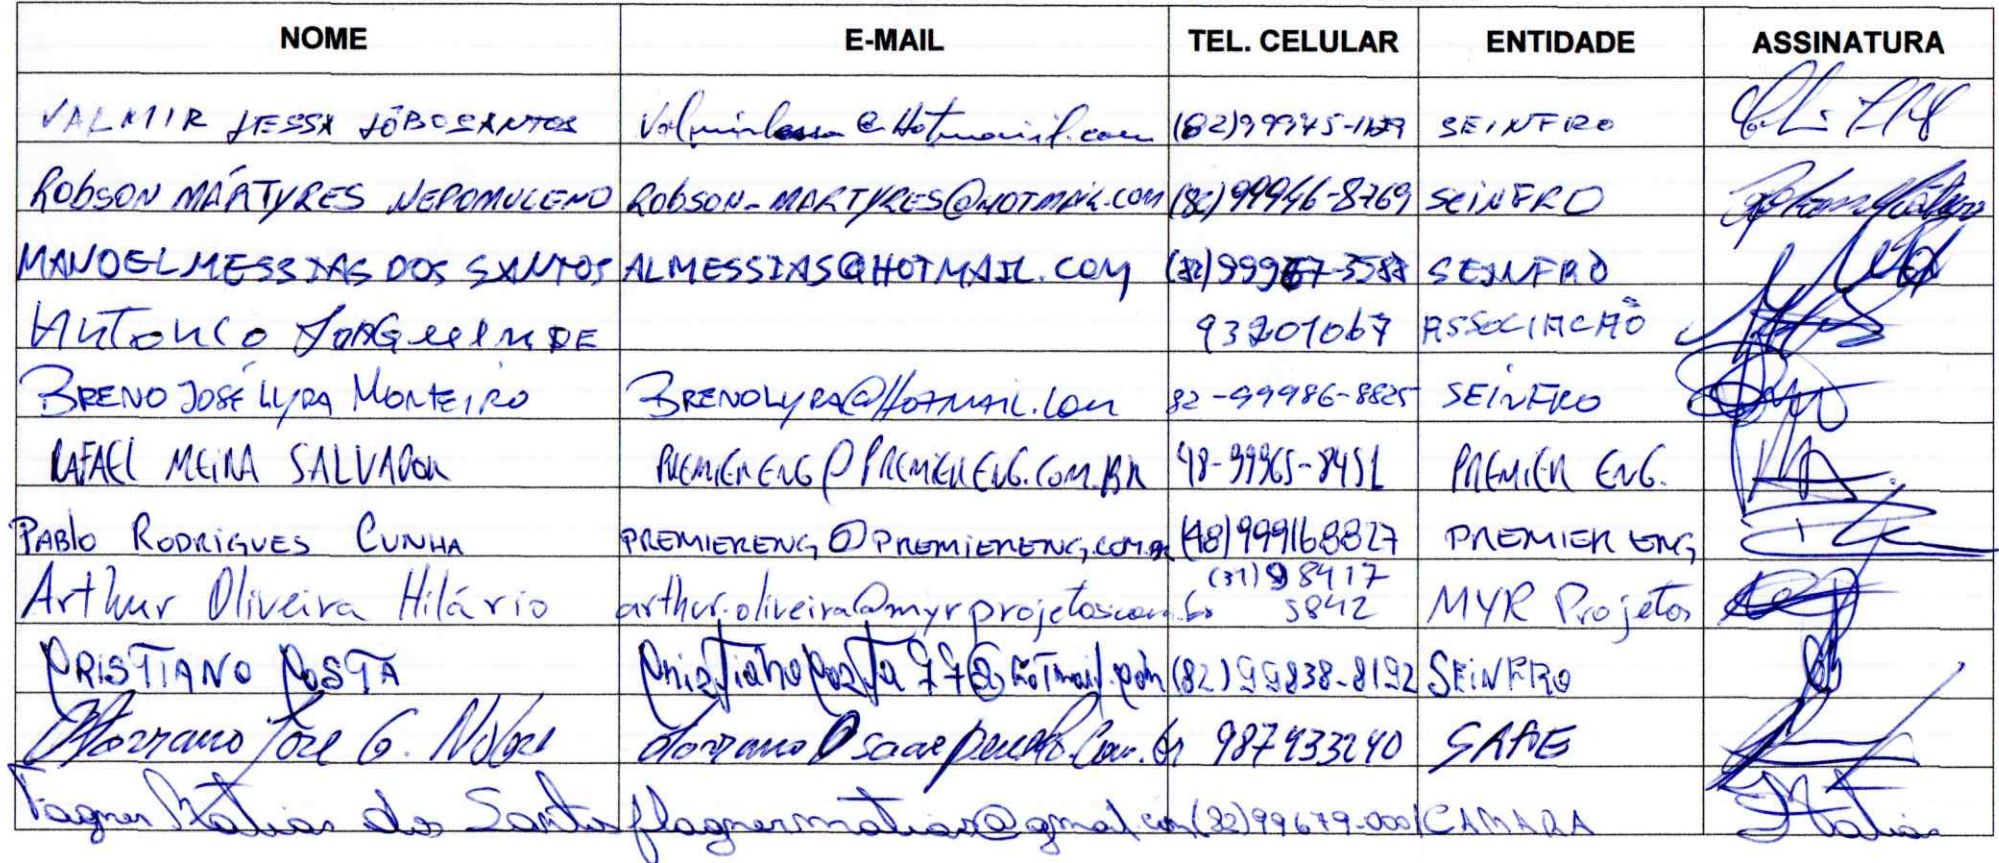 NOME E-MAIL TEL. CELULAR ENTIDADE ASSINATURA
VALMIR LESSA LÔBO SANTOS Valmirlessa@Hotmail.com SEINFRO
ROBSON MÁRTYRES NEPOMUCENO ROBSON-MARTYRES@HOTMAIL.COM (82)99946-8769 SEINFRO
MANOEL MESSIAS DOS SANTOS ALMESSIAS@HOTMAIL.COM SEINFRO
ANTONIO 93201067 ASSOCIACÃO
BRENO JOSÉ LYRA MONTEIRO BRENOLYRA@HOTMAIL.COM 82-99986-8825 SEINFRO
RAFAEL MEIRA SALVADOR PREMIERENG@PREMIERENG.COM.BR 48-99965-8451 PREMIER ENG.
PABLO RODRIGUES CUNHA PREMIERENG@PREMIERENG.COM.BR (48)999168827 PREMIER ENG
Arthur Oliveira Hilário arthur.oliveira@myrprojetos.com.br (31)98417 5842 MYR Projetos
CRISTIANO COSTA cristianocosta77@hotmail.com (82)99838-8192 SEINFRO
José G. Nobre 987433240 SAAE
Fagner Matias dos Santos flagnermatias@gmail.com (82)99679-0001 CAMARA